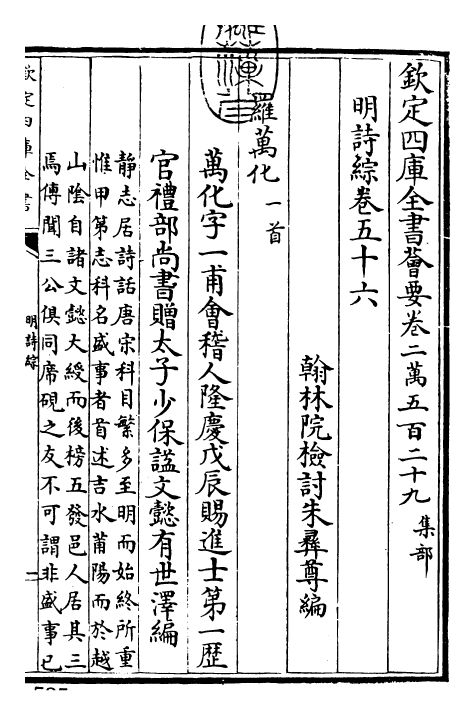 欽定四庫全書薈要卷二萬五百二十九 集部
明詩綜卷五十六
翰林院檢討朱彝尊編
羅萬化 一首
萬化字一甫會稽人隆慶戊辰賜進士第一歴
官禮部尚書贈太子少保諡文懿有世澤編
靜志居詩話唐宋科目繁多至明而始終所重
惟甲第志科名盛事者首述吉水莆陽而於越
山陰自諸文懿大綬而後榜五發邑人居其三
焉傳聞三公俱同席硯之友不可謂非盛事已
欽定四庫全書
明詩綜
一